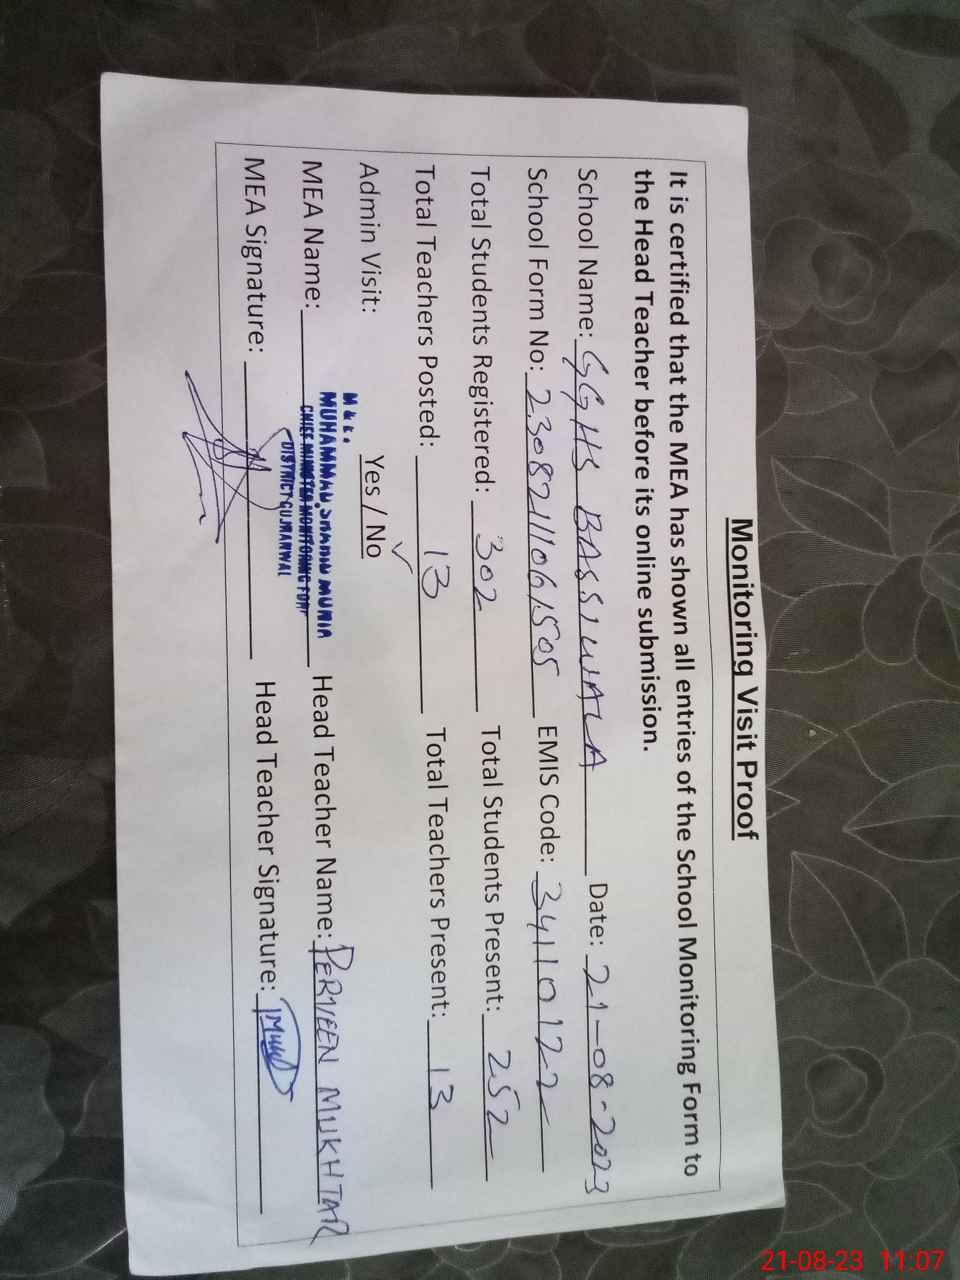 Monitoring Visit Proof
It is certified that the MEA has shown all entries of the School Monitoring Form to
the Head Teacher before its online submission.
School Name: GGHS BASSIWALA Date: 21-08-2023
School Form No: 2308211061505 EMIS Code: 34110122
Total Students Registered: 302 Total Students Present: 252
Total Teachers Posted: 13 Total Teachers Present: 13
Admin Visit: Yes / No ✓
M & E.
MEA Name: MUHAMMAD SHAHID Head Teacher Name: PERVEEN MUKHTAR
CHIEF MINISTER MONITORING FOR
DISTRICT GUJRANWAL
MEA Signature: Head Teacher Signature:
21-08-23 11:07